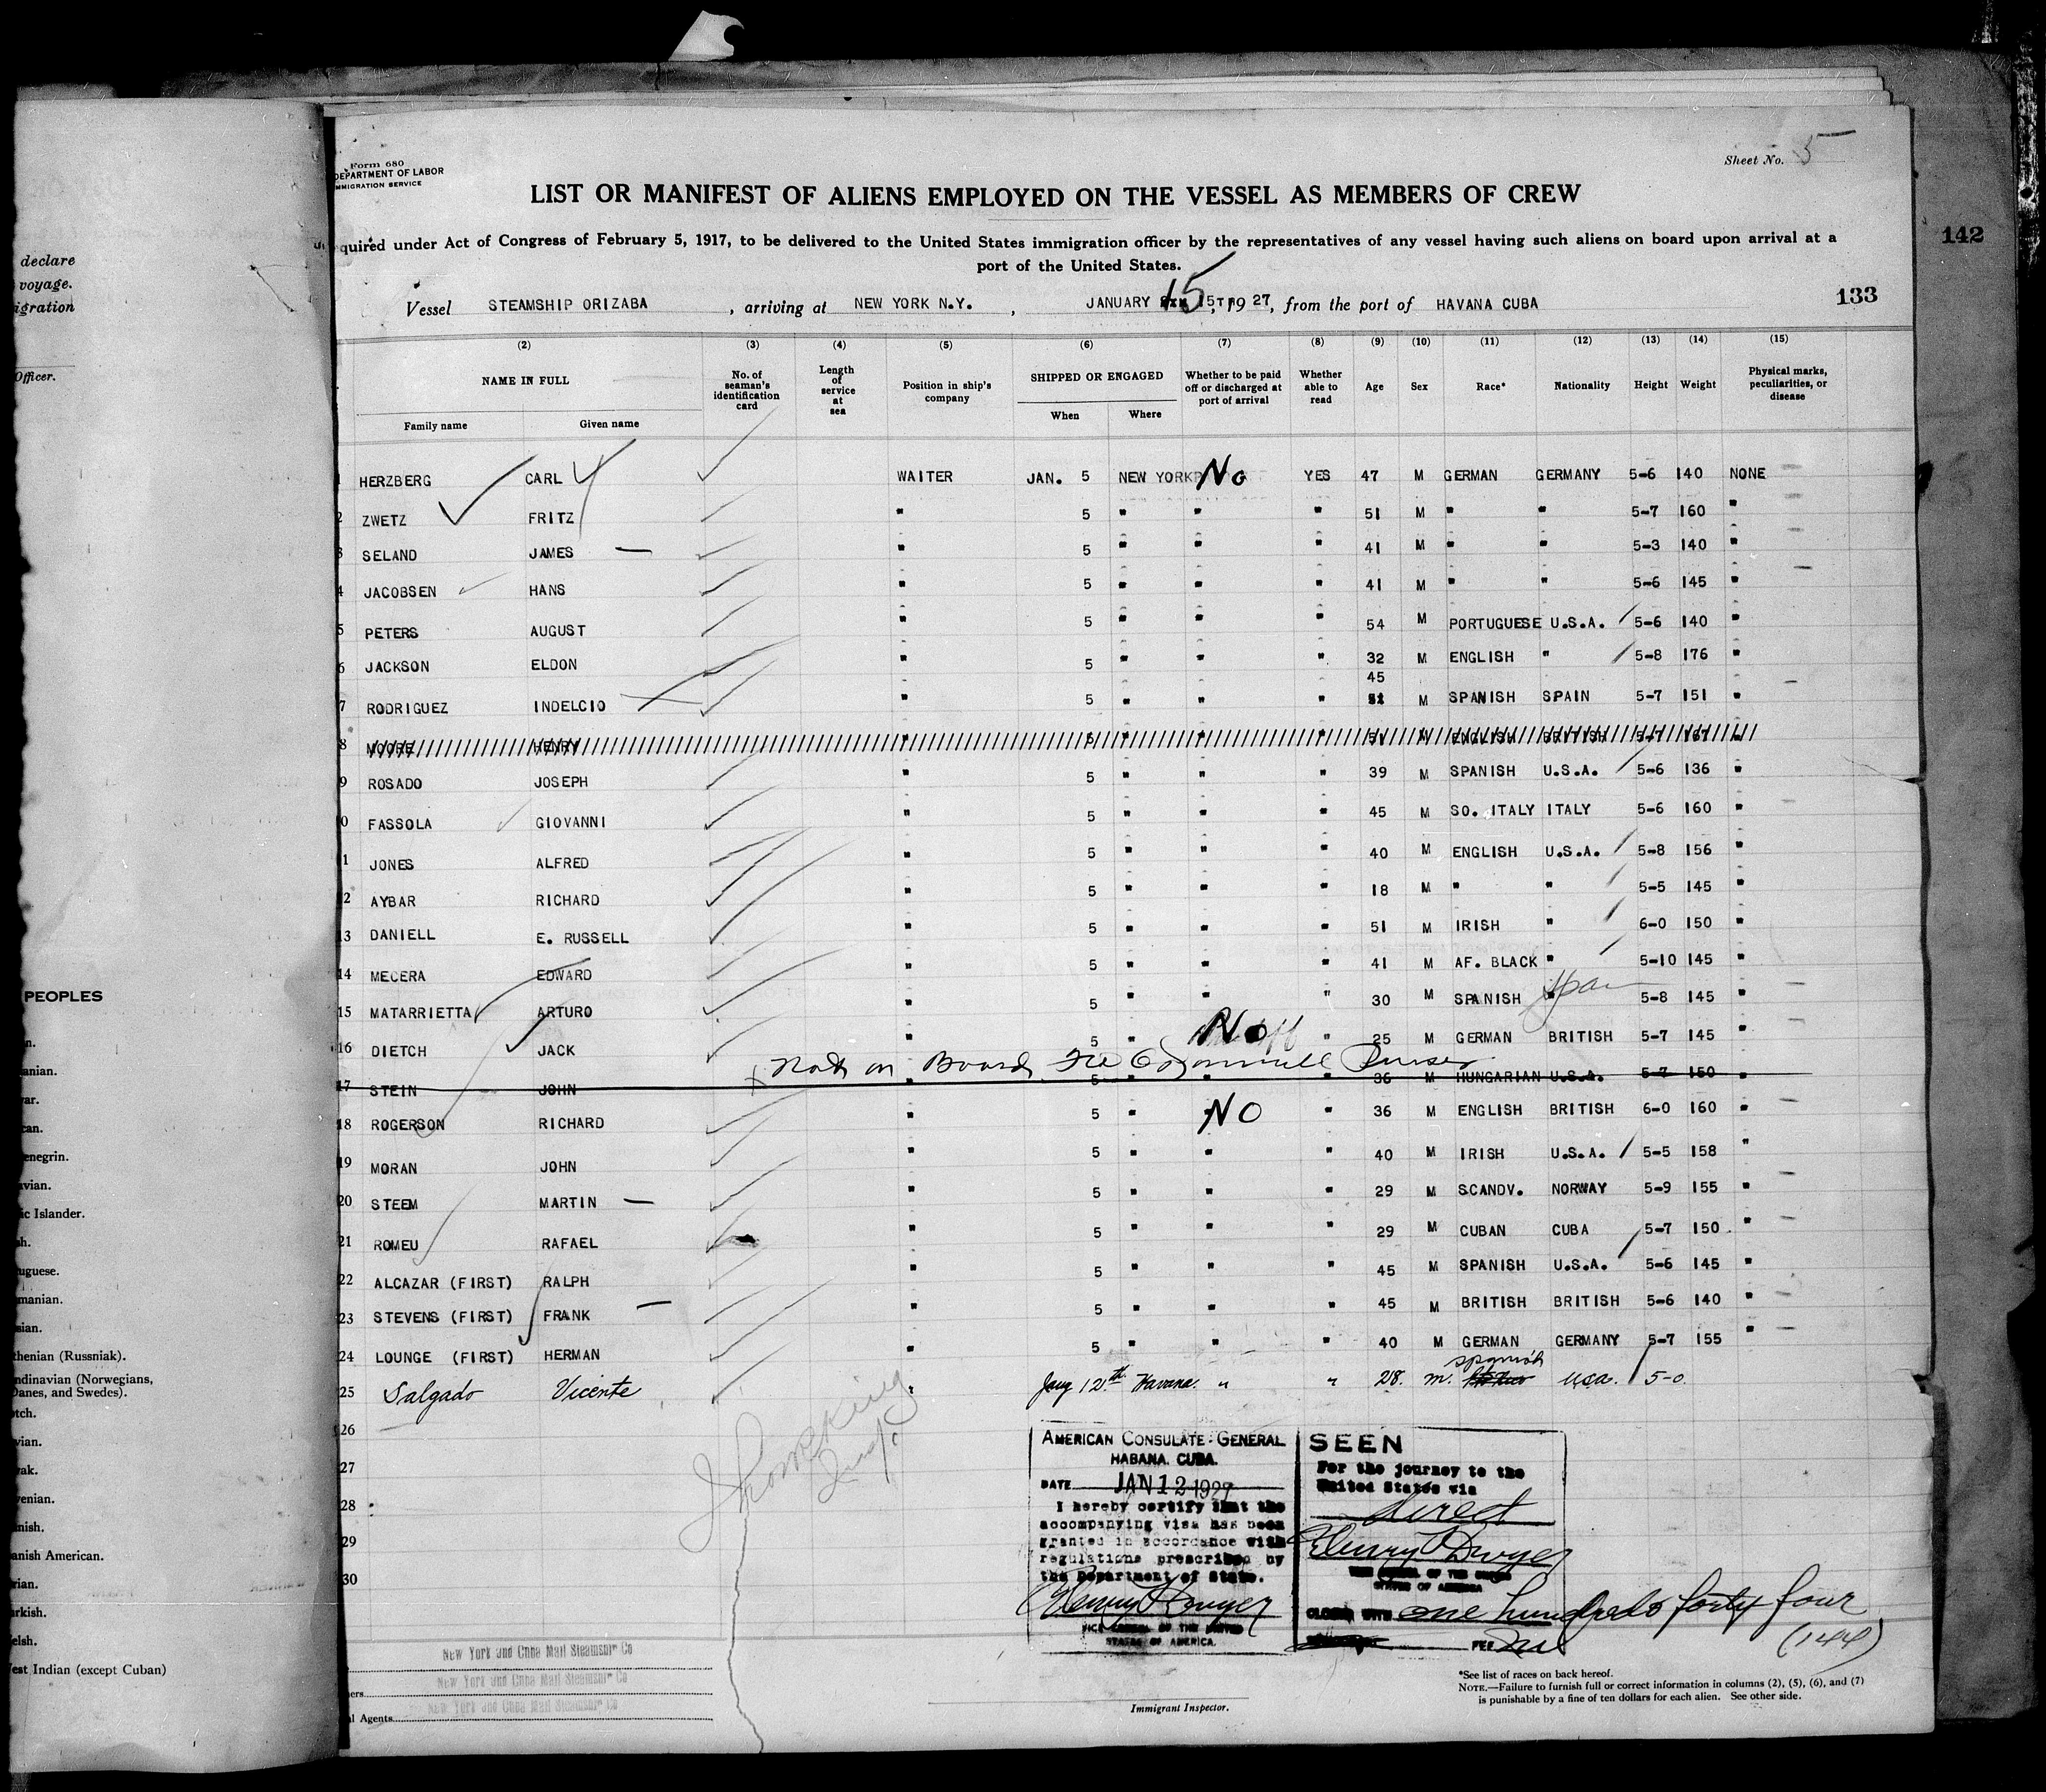 Form 680
DEPARTMENT OF LABOR
IMMIGRATION SERVICE
Sheet No. 5
LIST OR MANIFEST OF ALIENS EMPLOYED ON THE VESSEL AS MEMBERS OF CREW
quired under Act of Congress of February 5, 1917, to be delivered to the United States immigration officer by the representatives of any vessel having such aliens on board upon arrival at a
port of the United States.
142
Vessel STEAMSHIP ORIZABA, arriving at NEW YORK N.Y., JANUARY 15 15TH, 1927, from the port of HAVANA CUBA
133
(2) (3) (4) (5) (6) (7) (8) (9) (10) (11) (12) (13) (14) (15)
NAME IN FULL
Family name Given name
No. of seaman's identification card
Length of service at sea
Position in ship's company
SHIPPED OR ENGAGED
When Where
Whether to be paid off or discharged at port of arrival
Whether able to read
Age Sex Race* Nationality Height Weight
Physical marks, peculiarities, or disease
1 HERZBERG CARL WAITER JAN. 5 NEW YORK No YES 47 M GERMAN GERMANY 5-6 140 NONE
2 ZWETZ FRITZ " 5 " " " 51 M " " 5-7 160 "
3 SELAND JAMES — " 5 " " " 41 M " " 5-3 140 "
4 JACOBSEN HANS " 5 " " " 41 M " " 5-6 145 "
5 PETERS AUGUST " 5 " " " 54 M PORTUGUESE U.S.A. 5-6 140 "
6 JACKSON ELDON " 5 " " " 32 M ENGLISH " 5-8 176 "
45
7 RODRIGUEZ INDELCIO " 5 " " " M SPANISH SPAIN 5-7 151 "
8 MOORE HENRY " 5 M ENGLISH BRITISH
9 ROSADO JOSEPH " 5 " " " 39 M SPANISH U.S.A. 5-6 136 "
10 FASSOLA GIOVANNI " 5 " " " 45 M SO. ITALY ITALY 5-6 160 "
11 JONES ALFRED " 5 " " " 40 M ENGLISH U.S.A. 5-8 156 "
12 AYBAR RICHARD " 5 " " " 18 M " " 5-5 145 "
13 DANIELL E. RUSSELL " 5 " " " 51 M IRISH " 6-0 150 "
14 MECERA EDWARD " 5 " " " 41 M AF. BLACK " 5-10 145 "
15 MATARRIETTA ARTURO " 5 " " " 30 M SPANISH " Span 5-8 145 "
16 DIETCH JACK " 5 " No " 25 M GERMAN BRITISH 5-7 145 "
Not on Board Purser
17 STEIN JOHN " 5 " " " 36 M HUNGARIAN U.S.A. 5-7 150 "
18 ROGERSON RICHARD " 5 " NO " 36 M ENGLISH BRITISH 6-0 160 "
19 MORAN JOHN " 5 " " " 40 M IRISH U.S.A. 5-5 158 "
20 STEEM MARTIN — " 5 " " " 29 M SCANDV. NORWAY 5-9 155 "
21 ROMEU RAFAEL " 5 " " " 29 M CUBAN CUBA 5-7 150 "
22 ALCAZAR (FIRST) RALPH " 5 " " " 45 M SPANISH U.S.A. 5-6 145 "
23 STEVENS (FIRST) FRANK — " 5 " " " 45 M BRITISH BRITISH 5-6 140 "
24 LOUNGE (FIRST) HERMAN " 5 " " " 40 M GERMAN GERMANY 5-7 155 "
25 Salgado Vicente " Jany 12th Havana " " 28. m. spanish usa. 5-0
26
27
28
29
30
AMERICAN CONSULATE-GENERAL
HABANA. CUBA.
DATE JAN 12 1927
I hereby certify that the
accompanying visa has been
granted in accordance with
regulations prescribed by
the Department of State.
Henry T Dwyer
VICE CONSUL OF THE UNITED
STATES OF AMERICA.
SEEN
For the journey to the
United States via
direct
Henry T Dwyer
VICE CONSUL OF THE UNITED
STATES OF AMERICA
CLOSED WITH one hundred forty four
(144)
FEE
New York and Cuba Mail Steamship Co
New York and Cuba Mail Steamship Co
New York and Cuba Mail Steamship Co
ners
l Agents
Immigrant Inspector.
*See list of races on back hereof.
NOTE.—Failure to furnish full or correct information in columns (2), (5), (6), and (7)
is punishable by a fine of ten dollars for each alien. See other side.
declare
voyage.
igration
Officer.
PEOPLES
n.
anian.
ar.
can.
enegrin.
avian.
ic Islander.
sh.
uguese.
manian.
sian.
thenian (Russniak).
ndinavian (Norwegians,
Danes, and Swedes).
otch.
vian.
vak.
venian.
anish.
anish American.
rian.
urkish.
elsh.
est Indian (except Cuban)